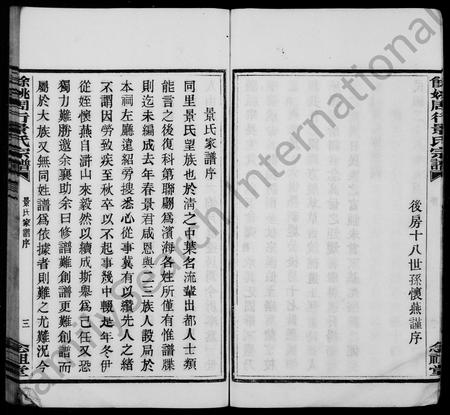 餘姚周行景氏宗譜
後房十八世孫懷燕謹序
念祖堂
景氏家譜序
同里景氏望族也於清之中葉名流輩出都人士類
能言之後復科第聯翩為濱海各姓所僅有惟譜牒
則迄未編成去年春景君咸恩與二三族人設局於
本祠左廳遠紹旁搜悉心從事冀有以纘先人之緒
不謂因勞致疾至秋卒以不起事幾中輟延年冬伊
從姪懷燕自滸山來毅然以續成斯舉為己任又恐
獨力難勝邀余襄助余曰修譜難創譜更難創譜而
屬於大族又無同姓譜為依據者則難之尤難況今
餘姚周行景氏宗譜
景氏家譜序
三
念祖堂
FamilySearch International